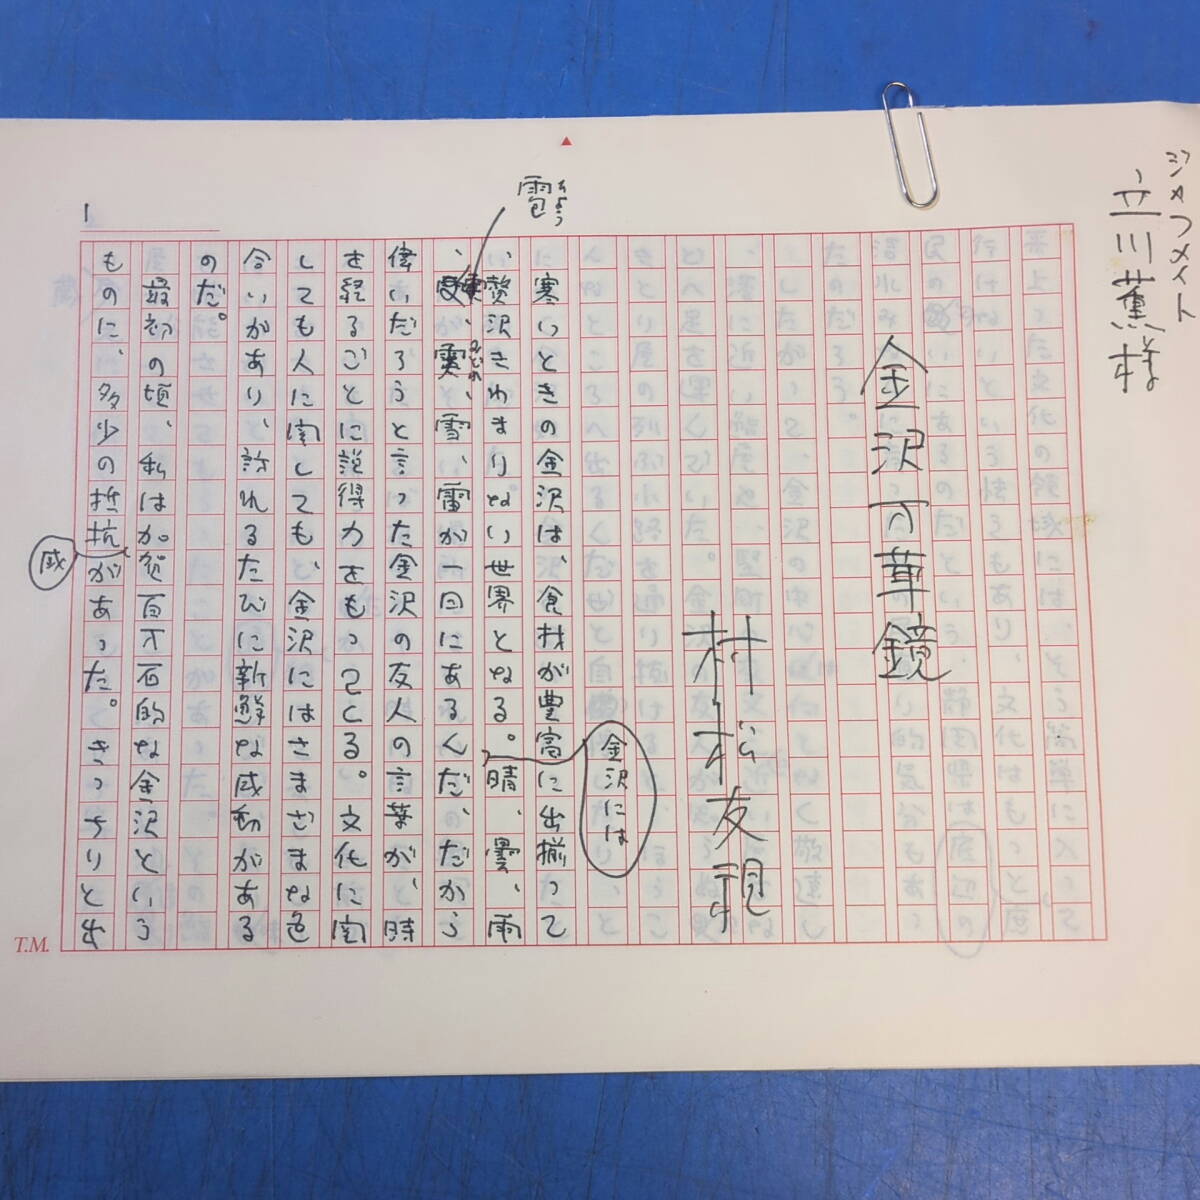 ジャフメイト
立川薫様
金沢万華鏡
村松友視
寒いときの金沢は、食材が豊富に出揃って
、贅沢きわまりない世界となる。晴、曇、雨
金沢には
雹
ひょう
、霙、雪、雷が一日にあるんだ、だから
みぞれ
偉いだろうと言った金沢の友人の言葉が、時
を経るごとに説得力をもってくる。文化に関
しても人に関しても、金沢にはさまざまな色
合いがあり、訪れるたびに新鮮な感動がある
のだ。
最初の頃、私は加賀百万石的な金沢という
ものに、多少の抵抗があった。きっちりと出
感
1
T.M.